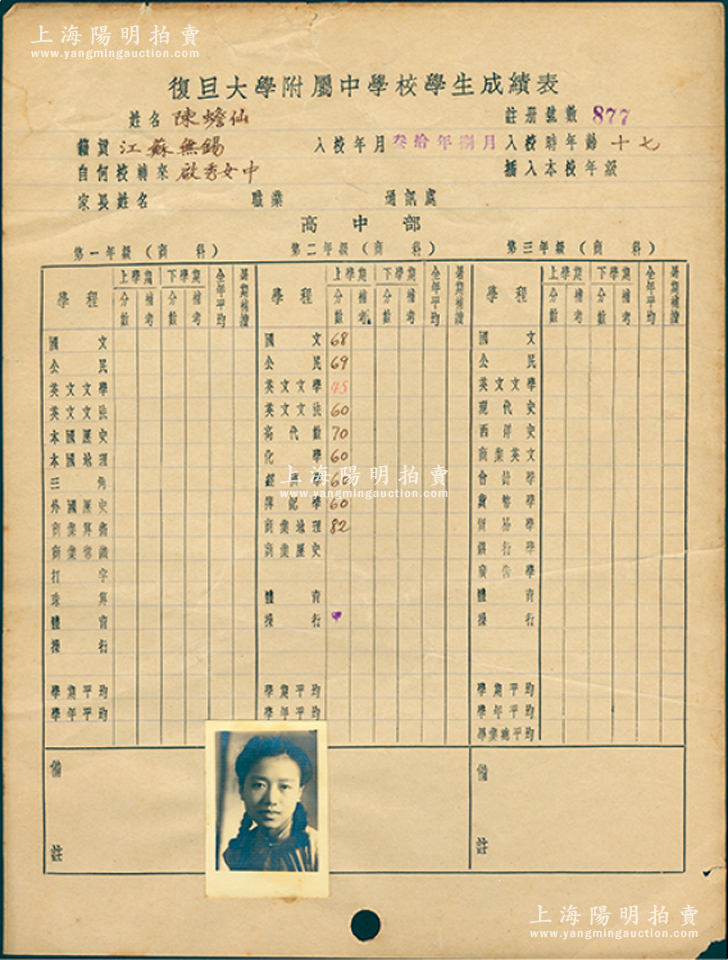 上海陽明拍賣
www.yangmingauction.com
復旦大學附屬中學校學生成績表
姓名 陳蟾仙 註册號數 877
籍貫 江蘇無錫 入校年月 叁拾年捌月 入校時年齡 十七
自何校轉來 啟秀女中 插入本校年級
家長姓名 職業 通訊處
高中部
第一年級(商科) 第二年級(商科) 第三年級(商科)
學程 上學期 下學期 全年平均 暑期補讀 學程 上學期 下學期 全年平均 暑期補讀 學程 上學期 下學期 全年平均 暑期補讀
分數 補考 分數 補考 分數 補考 分數 補考 分數 補考 分數 補考
國文 國文 68 國文
公民 公民 69 公民
英文文學 英文文學 45 英文文學
英文文法 英文文法 60 現代史
本國歷史 高代數 70 西洋史
本國地理 化學 60 商業英文
三角 經濟學 60 會計學
上海陽明拍賣
www.yangmingauction.com
外國歷史 簿記學 60 貨幣學
商業算術 商業地理 82 貿易學
商業常識 商業歷史 銀行學
打字 廣告學
珠算 體育 體育
體育 操行 操行
操行
學期平均 學期平均 學期平均
學年平均 學年平均 學年平均
學業總平均
備註 備註
上海陽明拍賣
www.yangmingauction.com